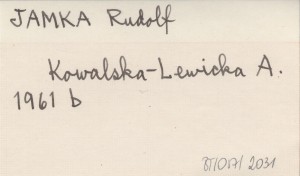 JAMKA Rudolf
Kowalska-Lewicka A.
1961 b
2031